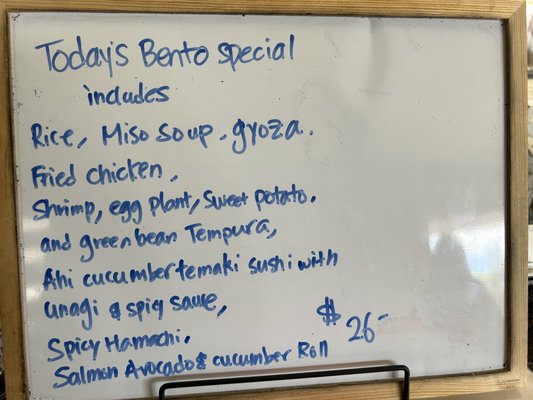 Today's Bento special
includes
Rice, Miso soup, gyoza.
Fried chicken,
Shrimp, egg plant, sweet potato.
and green bean Tempura,
Ahi cucumber temaki sushi with
unagi & spicy sauce,
Spicy Hamachi.
Salmon Avocado & cucumber Roll
$26-